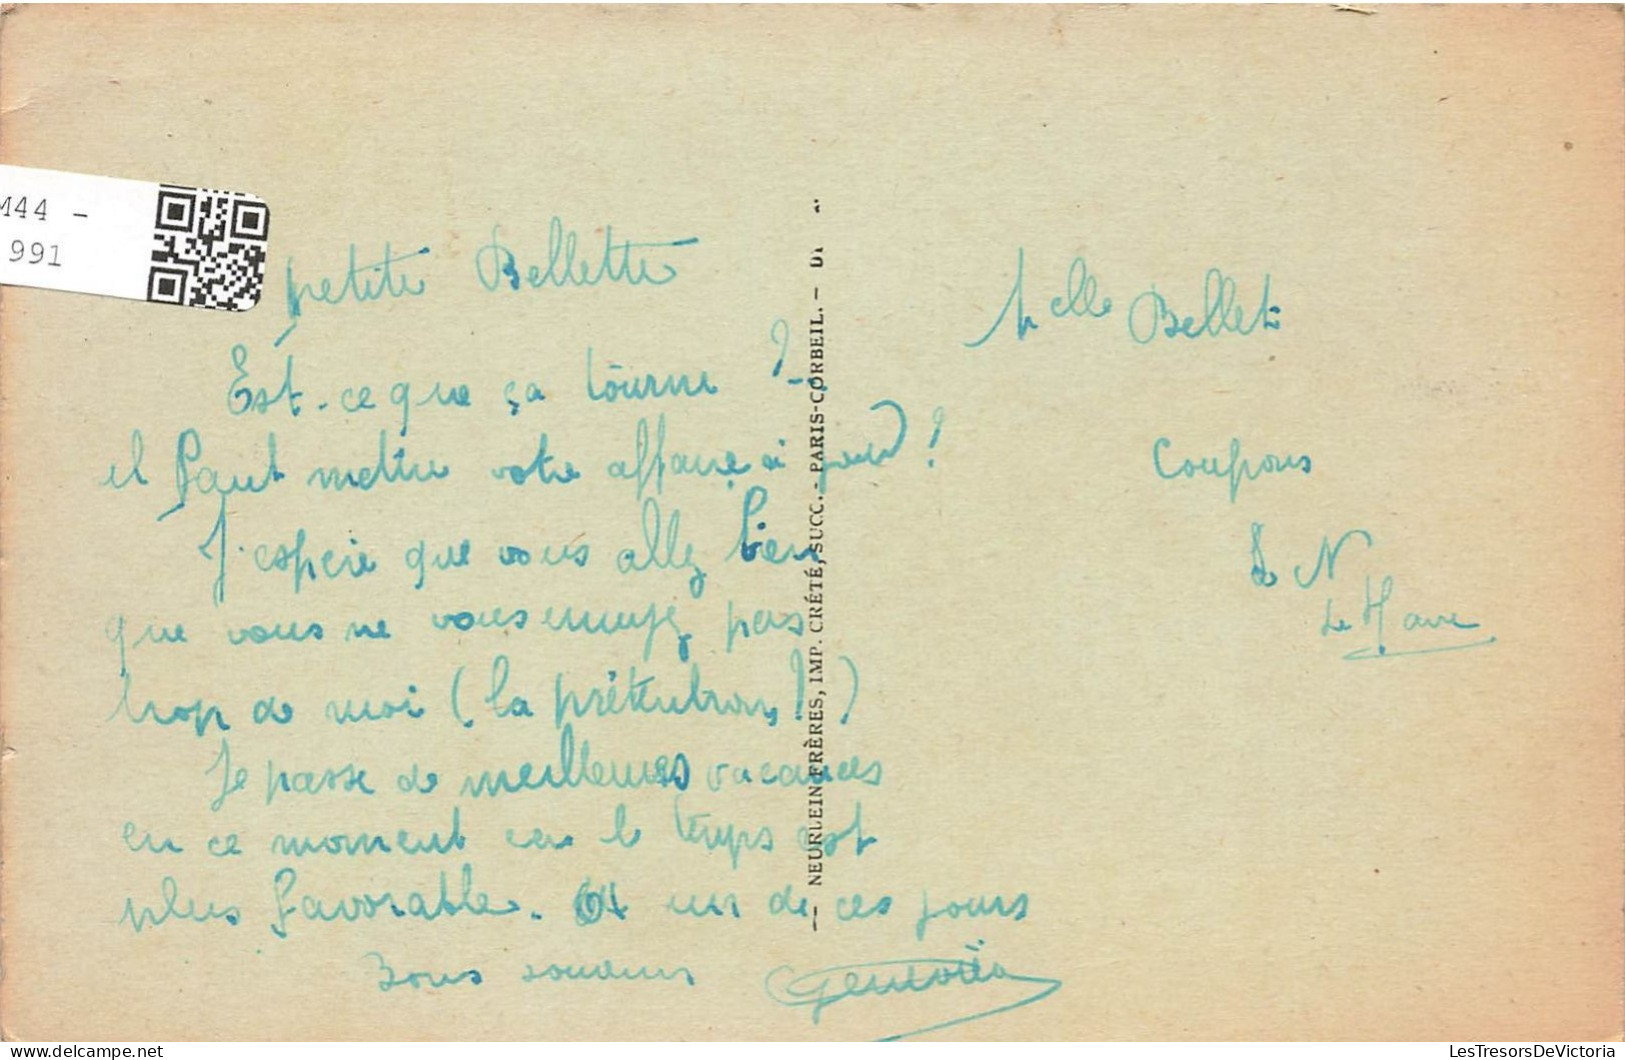 M44 -
991
petite Bellette
Est-ce que ça tourne ?
il faut mettre votre affaire à jour ?
J'espère que vous allez bien
que vous ne vous ennuyez pas
trop de moi (la prétention !)
Je passe de meilleures vacances
en ce moment car le temps est
plus favorable. un de ces jours
Bons souvenirs
Melle Bellet
Coupons
N
Le Havre
— NEURLEIN FRÈRES, IMP. CRÉTÉ, SUCC. - PARIS-CORBEIL. -
LesTresorsDeVictoria.com
LesTresorsDeVictoria